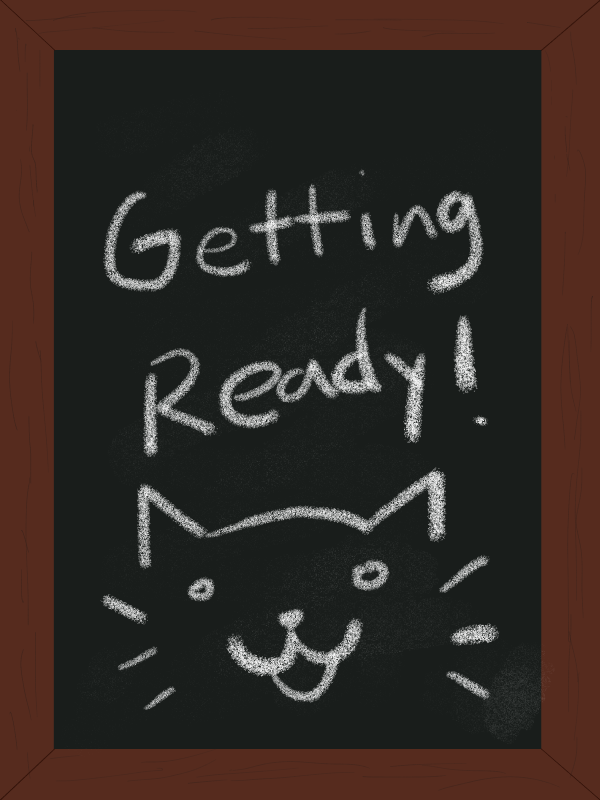 Getting
Ready!